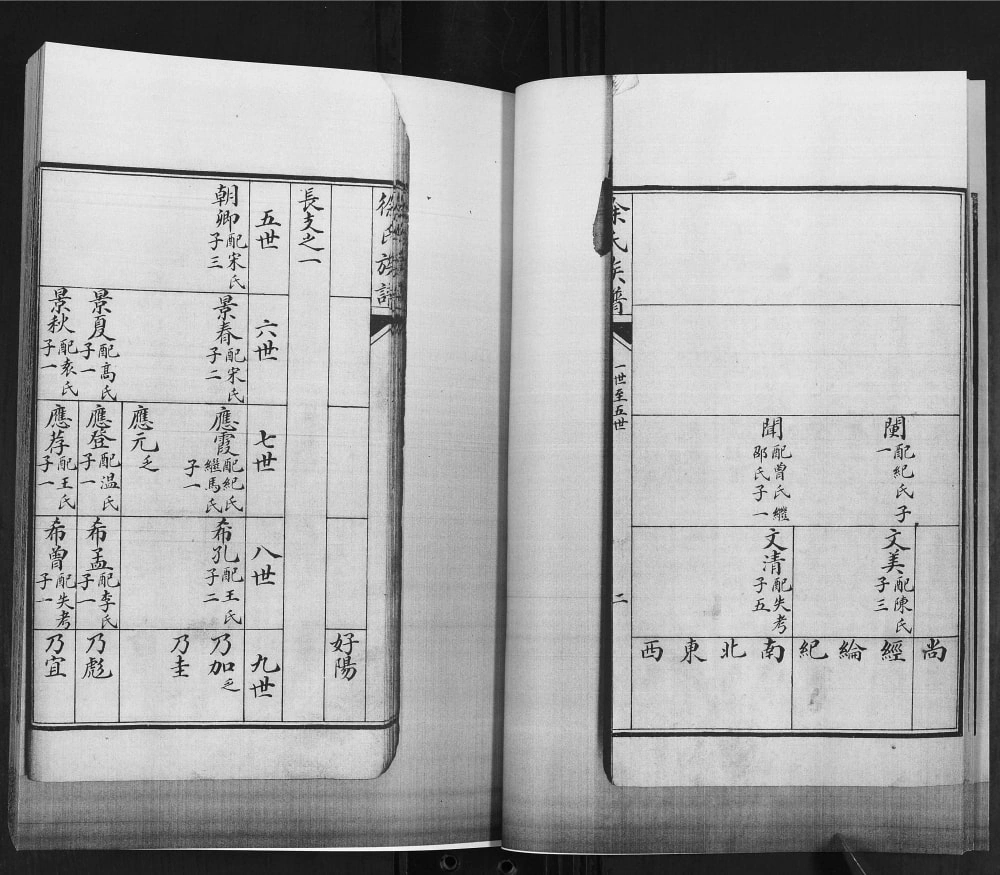 尚
閩配紀氏子一
文美配陳氏子三
經
綸
紀
聞配曾氏繼邵氏子一
文清配失考子五
南
北
東
西
徐氏族譜
一世至五世
二
徐氏族譜
好陽
長支之一
五世
六世
七世
八世
九世
朝卿配宋氏子三
景春配宋氏子二
應霞配紀氏繼馬氏子一
希孔配王氏子二
乃加乏
乃圭
應元乏
景夏配高氏子一
應登配温氏子一
希孟配李氏子一
乃彪
景秋配袁氏子一
應荐配王氏子一
希曾配失考子一
乃宜